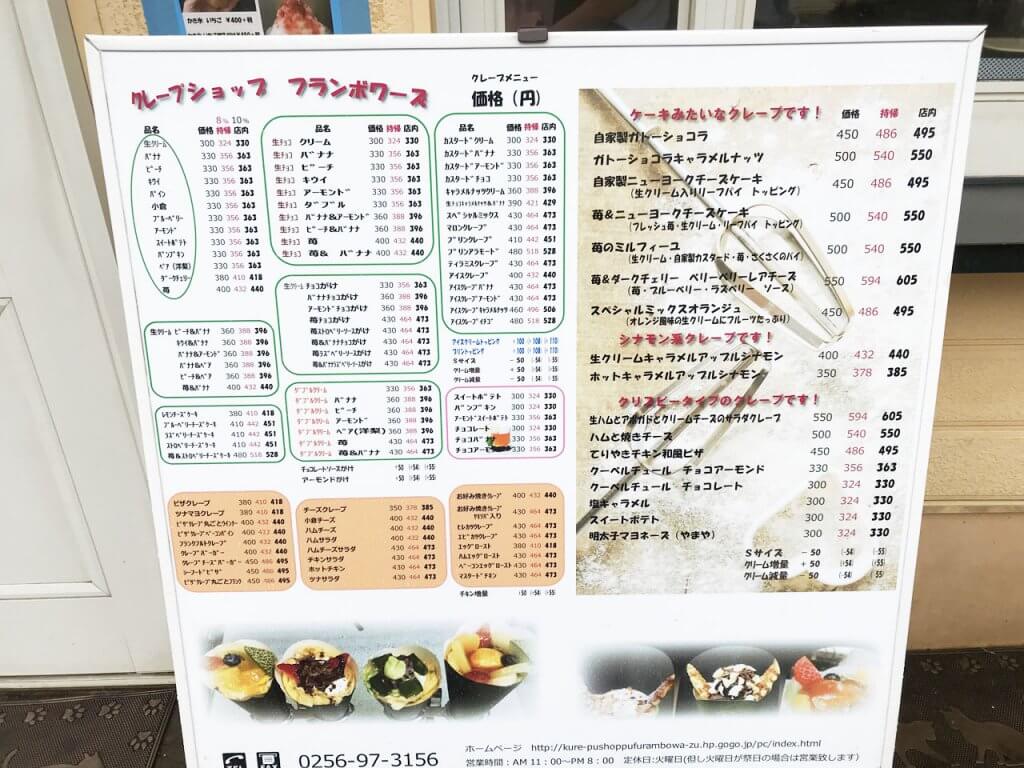 かき氷 いちご ¥400+税
クレープショップ フランボワーズ
クレープメニュー
価格（円）
8% 10%
品名 価格 持帰 店内
生クリーム 300 324 330
バナナ 330 356 363
ピーチ 330 356 363
キウイ 330 356 363
パイン 330 356 363
小倉 330 356 363
ブルーベリー 330 356 363
アーモンド 330 356 363
スイートポテト 330 356 363
パンプキン 330 356 363
ペア（洋梨） 330 356 363
ダークチェリー 380 410 418
苺 400 432 440
生クリーム ピーチ&バナナ 360 388 396
キウイ&バナナ 360 388 396
バナナ&アーモンド 360 388 396
バナナ&ペア 360 388 396
ピーチ&ペア 360 388 396
苺&バナナ 400 432 440
レモンチーズケーキ 380 410 418
ブルーベリーチーズケーキ 410 442 451
ラズベリーチーズケーキ 410 442 451
ストロベリーチーズケーキ 410 442 451
苺&ストロベリーチーズケーキ 480 518 528
品名 価格 持帰 店内
生チョコ クリーム 300 324 330
生チョコ バナナ 330 356 363
生チョコ ピーチ 330 356 363
生チョコ キウイ 330 356 363
生チョコ アーモンド 330 356 363
生チョコ ダブル 330 356 363
生チョコ バナナ&アーモンド 360 388 396
生チョコ ピーチ&バナナ 360 388 396
生チョコ 苺 400 432 440
生チョコ 苺& バナナ 400 432 440
生クリーム チョコがけ 330 356 363
バナナチョコがけ 360 388 396
アーモンドチョコがけ 360 388 396
苺チョコがけ 430 464 473
苺ストロベリーソースがけ 430 464 473
苺バナナチョコがけ 430 464 473
苺ラズベリーソースがけ 430 464 473
苺バナナラズベリーソースがけ 430 464 473
ダブルクリーム 330 356 363
ダブルクリーム バナナ 360 388 396
ダブルクリーム ピーチ 360 388 396
ダブルクリーム アーモンド 360 388 396
ダブルクリーム ペア(洋梨) 360 388 396
ダブルクリーム 苺 430 464 473
ダブルクリーム 苺&バナナ 430 464 473
チョコレートソースがけ +50 (+54) (+55)
アーモンドがけ +50 (+54) (+55)
品名 価格 持帰 店内
カスタードクリーム 300 324 330
カスタードバナナ 330 356 363
カスタードアーモンド 330 356 363
カスタードチョコ 330 356 363
キャラメルナッツクリーム 360 388 396
生チョコキャラメルナッツ&バナナ 390 421 429
スペシャルミックス 430 464 473
マロンクレープ 430 464 473
プリンクレープ 410 442 451
プリンアラモード 480 518 528
ティラミスクレープ 430 464 473
アイスクレープ 400 432 440
アイスクレープバナナ 430 464 473
アイスクレープアーモンド 430 464 473
アイスクレープキャラメルナッツ 460 496 506
アイスクレープイチゴ 480 518 528
アイスクリームトッピング +100 (+108) (+110)
プリントッピング +100 (+108) (+110)
Sサイズ - 50 (-54) (-55)
クリーム増量 + 50 (+54) (+55)
クリーム減量 - 50 (-54) (-55)
スイートポテト 300 324 330
パンプキン 300 324 330
アーモンドスイートポテト 330 356 363
チョコレート 300 324 330
チョコバナナ 330 356 363
チョコアーモンド 330 356 363
ピザクレープ 380 410 418
ツナマヨクレープ 380 410 418
ピザクレープ丸ごとウイント 400 432 440
ピザクレープベーコンパイン 400 432 440
フランクフルトクレープ 400 432 440
クレープバーガー 400 432 440
クレープチーズバーガー 450 486 495
シーフードピザ 450 486 495
ピザクレープ丸ごとフランク 450 486 495
チーズクレープ 350 378 385
小倉チーズ 400 432 440
ハムチーズ 400 432 440
ハムサラダ 400 432 440
ハムチーズサラダ 430 464 473
チキンサラダ 430 464 473
ホットチキン 430 464 473
ツナサラダ 430 464 473
お好み焼きクレープ 400 432 440
お好み焼きクレープ
ヤキソバ入り 430 464 473
ヒレカツクレープ 430 464 473
エビカツクレープ 430 464 473
エッグロースト 380 410 418
ハムエッグロースト 430 464 473
ベーコンエッグロースト 430 464 473
マスタードチキン 430 464 473
チキン増量 +50 (+54) (+55)
ケーキみたいなクレープです！ 価格 持帰 店内
自家製ガトーショコラ 450 486 495
ガトーショコラキャラメルナッツ 500 540 550
自家製ニューヨークチーズケーキ 450 486 495
（生クリーム入りリーフパイ トッピング）
苺&ニューヨークチーズケーキ 500 540 550
（フレッシュ苺・生クリーム・リーフパイ トッピング）
苺のミルフィーユ 500 540 550
（生クリーム・自家製カスタード・苺・さくさくのパイ）
苺&ダークチェリー ベリーベリーレアチーズ 550 594 605
（苺・ブルーベリー・ラズベリー ソース）
スペシャルミックスオランジュ 450 486 495
（オレンジ風味の生クリームにフルーツたっぷり）
シナモン系クレープです！
生クリームキャラメルアップルシナモン 400 432 440
ホットキャラメルアップルシナモン 350 378 385
クリスピータイプのクレープです！
生ハムとアボガドとクリームチーズのサラダクレープ 550 594 605
ハムと焼きチーズ 500 540 550
てりやきチキン和風ピザ 450 486 495
クーベルチュール チョコアーモンド 330 356 363
クーベルチュール チョコレート 300 324 330
塩キャラメル 300 324 330
スイートポテト 300 324 330
明太子マヨネーズ（やまや） 300 324 330
Sサイズ - 50 (-54) (-55)
クリーム増量 + 50 (+54) (+55)
クリーム減量 - 50 (-54) (-55)
TEL FAX 0256-97-3156
ホームページ http://kure-pushoppufurambowa-zu.hp.gogo.jp/pc/index.html
営業時間：AM 11：00～PM 8：00 定休日:火曜日(但し火曜日が祭日の場合は営業致します)